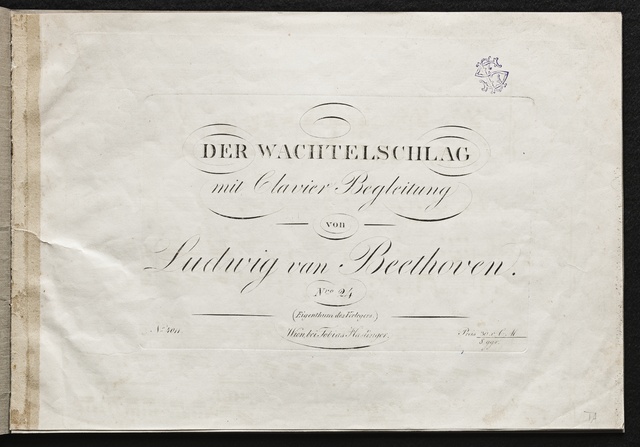 DER WACHTELSCHLAG
mit Clavier Begleitung
von
Ludwig van Beethoven.
Nro 24
(Eigenthum des Verlegers.)
Wien, bei Tobias Haslinger.